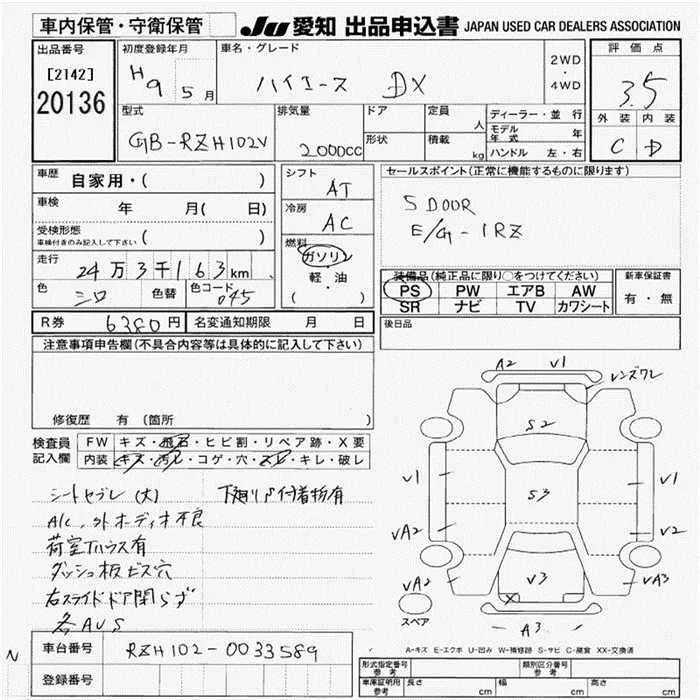 車内保管・守衛保管 JU 愛知 出品申込書 JAPAN USED CAR DEALERS ASSOCIATION
出品番号 初度登録年月 車名・グレード 2WD・4WD 評価点
[2142] H9年5月 ハイエース DX 3.5
20136
型式 排気量 ドア 定員 人 ディーラー・並行 外装 内装
GB-RZH102V 2000cc 形状 積載 kg モデル年式 年 C D
ハンドル 左・右
車歴 自家用・( ) シフト AT セールスポイント(正常に機能するものに限ります)
車検 年 月( 日) 冷房 AC 5DOOR
受検形態 ( ) E/G-1RZ
車検付きのみ記入して下さい
燃料 ガソリン・軽・油 ( )
走行 24万3千163km 装備品(純正品に限り○をつけてください) 新車保証書
色 シロ 色替 色コード 045 PS PW エアB AW 有・無
SR ナビ TV カワシート
R券 6380円 名変通知期限 月 日 後日品
注意事項申告欄(不具合内容等は具体的に記入して下さい)
修復歴 有 (箇所 )
検査員記入欄 FW キズ・飛石・ヒビ割・リペア跡・X要
内装 キズ・汚レ・コゲ・穴・スレ・キレ・破レ
シートセブレ (大) 下廻リ 付着物有
A/C、外オーディオ不良
荷室Tハウス有
ダッシュ板ビス穴
右スライドドア閉らず
各AUS
A2 V1 レンズワレ
S2
V1 S3 V1
VA2 V2
VA2 V3 X VA3
スペア A3
A-キズ E-エクボ U-凹み W-補修跡 S-サビ C-腐食 XX-交換済
N 車台番号 RZH102-0033589
登録番号
形式指定番号 参考 類別区分番号 参考
車庫証明用 参考 長さ cm 幅 cm 高さ cm